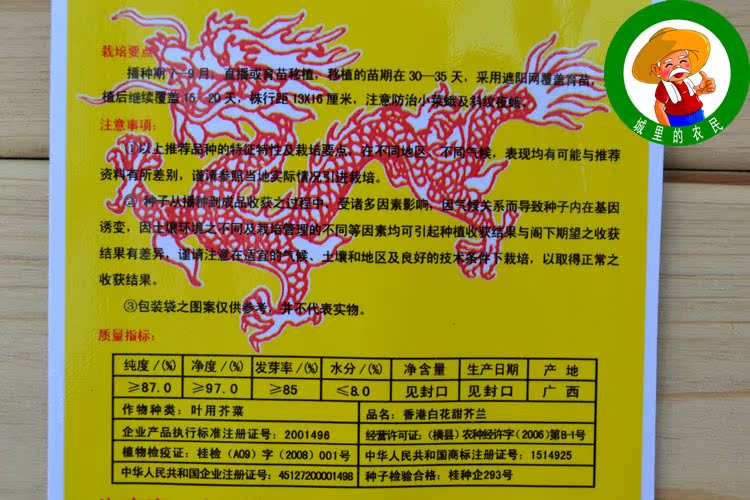 城里的农民
栽培要点:
播种期7—9月,直播或育苗移植,移植的苗期在30—35天,采用遮阳网覆盖育苗,
植后继续覆盖15—20天,株行距13X16厘米,注意防治小菜蛾及斜纹夜蛾。
注意事项:
①以上推荐品种的特征特性及栽培要点,在不同地区、不同气候,表现均有可能与推荐
资料有所差别,谨请参照当地实际情况引进栽培。
② 种子从播种到成品收获之过程中,受诸多因素影响,因气候关系而导致种子内在基因
诱变,因土壤环境之不同及栽培管理的不同等因素均可引起种植收获结果与阁下期望之收获
结果有差异,谨请注意在适宜的气候、土壤和地区及良好的技术条件下栽培,以取得正常之
收获结果。
③包装袋之图案仅供参考,并不代表实物。
质量指标:
纯度/(%) 净度/(%) 发芽率/(%) 水分/(%) 净含量 生产日期 产地
≥87.0 ≥97.0 ≥85 ≤8.0 见封口 见封口 广西
作物种类:叶用芥菜 品名:香港白花甜芥兰
企业产品执行标准注册证号:2001496 经营许可证:(横县)农种经许字(2006)第B-1号
植物检疫证:桂检(A09)字(2008)001号 中华人民共和国商标注册证号:1514925
中华人民共和国企业注册证号:45127200001498 种子检验合格:桂种企293号